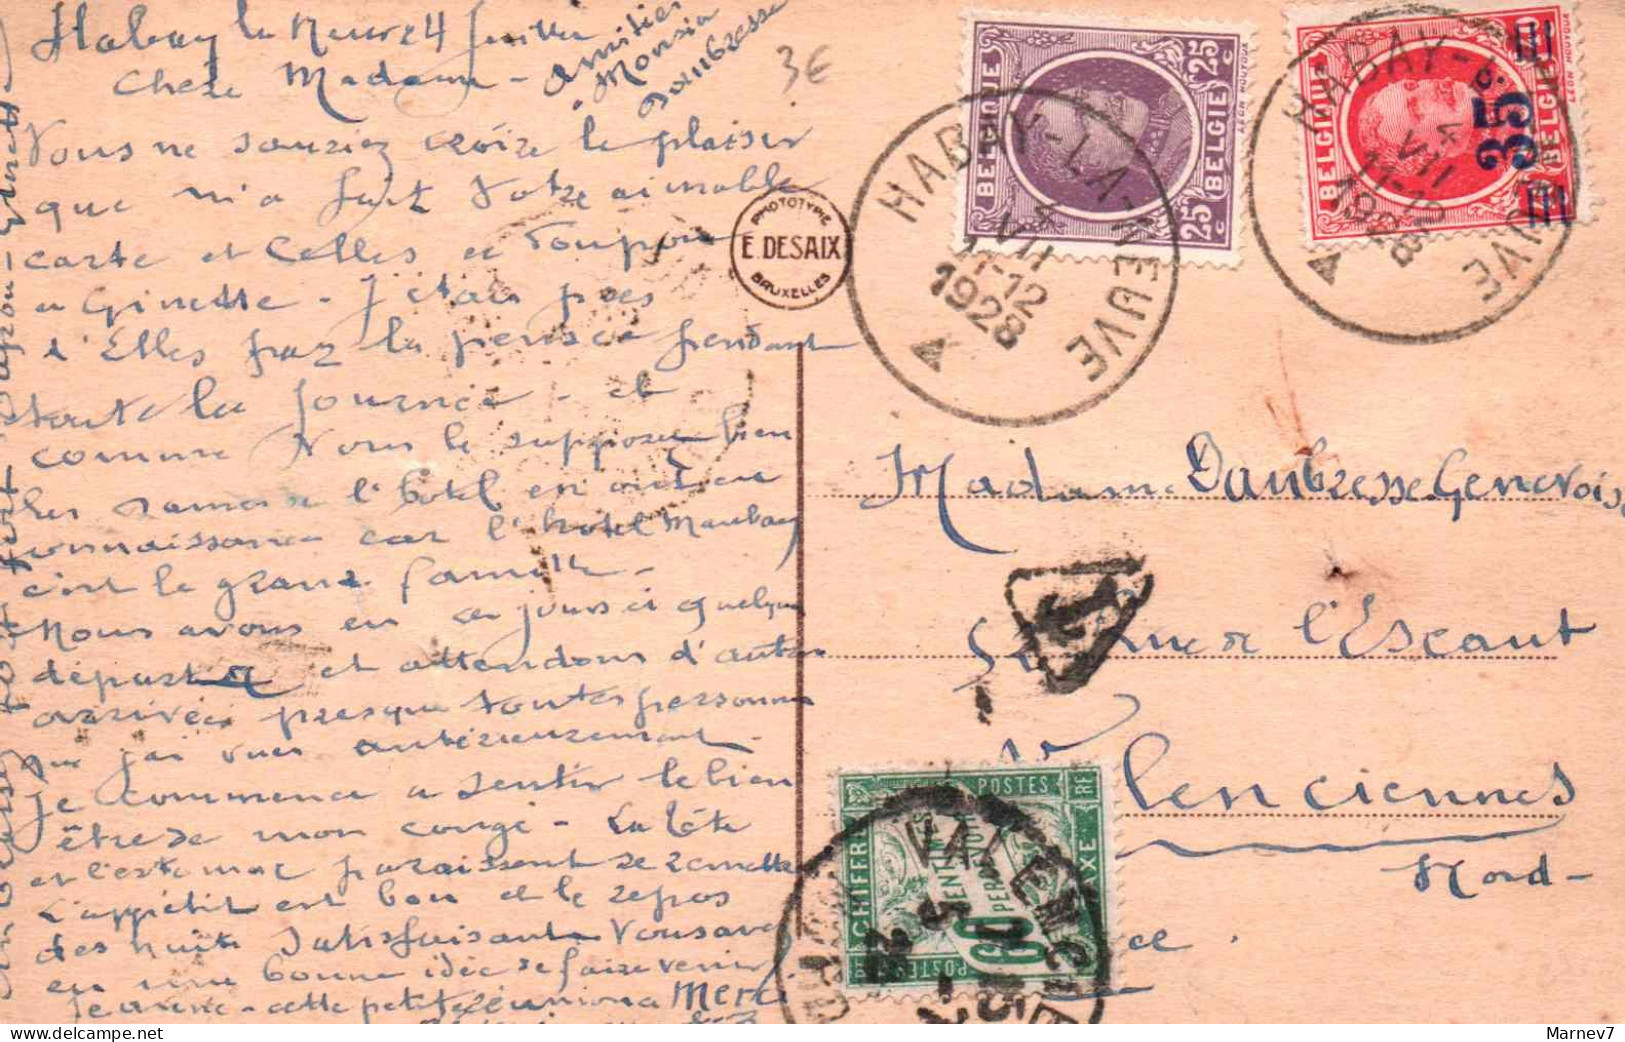 Habay la Neuve 4 Juillet
Chère Madame - amitiés
Monsieur
Daubresse
3€
Vous ne sauriez croire le plaisir
que m'a fait votre aimable
carte et celles de Poupon
et Ginette - J'étais près
d'Elles par la pensée pendant
toute la journée - et
comme vous le supposez bien
les dames de l'hotel en ont eu
connaissance car l'hotel Maubay
c'est la grande famille -
Nous avons eu ces jours ci quelques
départs et attendons d'autres
arrivées presque toutes personnes
que j'ai vues antérieurement -
Je commence a sentir le bien
être de mon congé - La tête
et l'estomac paraissent se remettre
L'appétit est bon et le repos
des nuits satisfaisant Vous avez
eu une bonne idée de faire venir
Jeanne - cette petite réunion a Merci
PHOTOTYPIE
E. DESAIX
BRUXELLES
BELGIQUE
25 c 25 c
BELGIE
LEON HOUYOUX
HABAY-LA-NEUVE
4
VII
11-12
1928
A
BELGIQUE
35 c.
BELGIE
LEON HOUYOUX
HABAY-LA-NEUVE
4
VII
11-12
1928
A
Madame Daubresse Genevois
rue de l'Escaut
T
Valenciennes
Nord -
POSTES
RF
CHIFFRE TAXE
CENTIMES
A PERCEVOIR
60
POSTES
VALENCIENNES
Marnev7